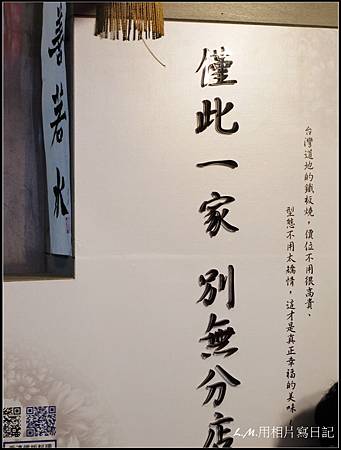 台灣道地的鐵板燒，價位不用很高貴、
型態不用太矯情，這才是真正幸福的美味
僅此一家 別無分店
善若水
L.M.用相片寫日記